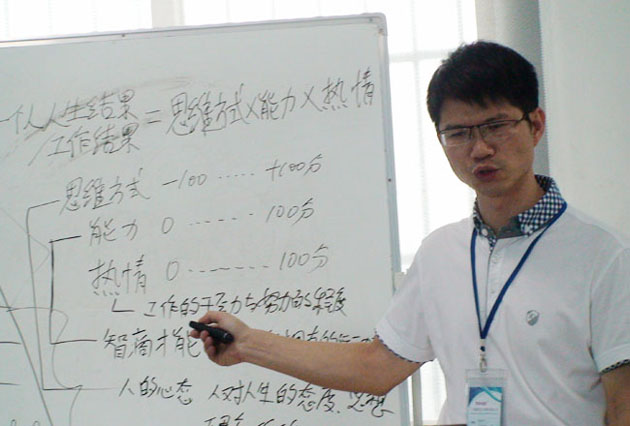 一个人人生结果
/工作结果 = 思维方式×能力×热情
思维方式 -100 ..... +100分
能力 0 ------- 100分
热情 0 ------- 100分
工作的干劲力与努力的程度
智商才能
人的心态 人对人生的态度、思想